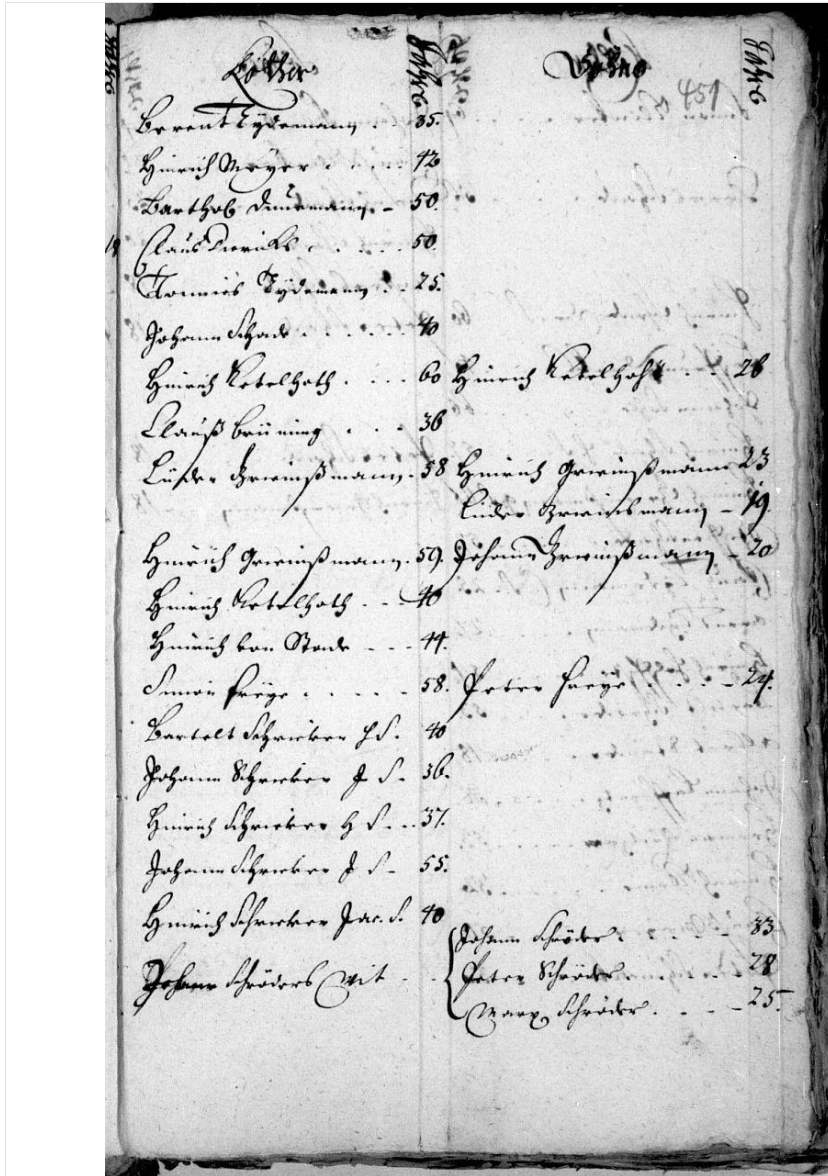 Köther Jahre Söhne Jahre
451
Berent Tydemann . 35.
Hinrich Meyer . . . . 42
Barthol Dauemann - 50.
Claus Diericks . . . . . 50.
Tonnies Tydemann . . 25.
Johann Schade . . . . . 40
Hinrich Ketelhoth . . . . 60 Hinrich Ketelhoht . . . 26
Clauß Brüning . . . 36
Lüder Grewinßmann . 58 Hinrich Grewinßmann 23
Lüder Grewinsmann - 19.
Hinrich Grewinßmann . 59. Johann Grewinßmann - 20
Hinrich Ketelhoth . . . 40
Hinrich von Stade - - - 44.
Simon Freye . . . . . . 58. Peter Freye . . . . - 24.
Bartelt Schrieber H S. 40
Johann Schrieber J S. 36.
Hinrich Schrieber H S. . . 37.
Johann Schrieber J S - 55.
Hinrich Schrieber Jac. S. 40
Johann Schröder . . . . - 33
Johann Schröders Wit . . Peter Schröder . . . . . 28
Marx Schröder . . . - 25.